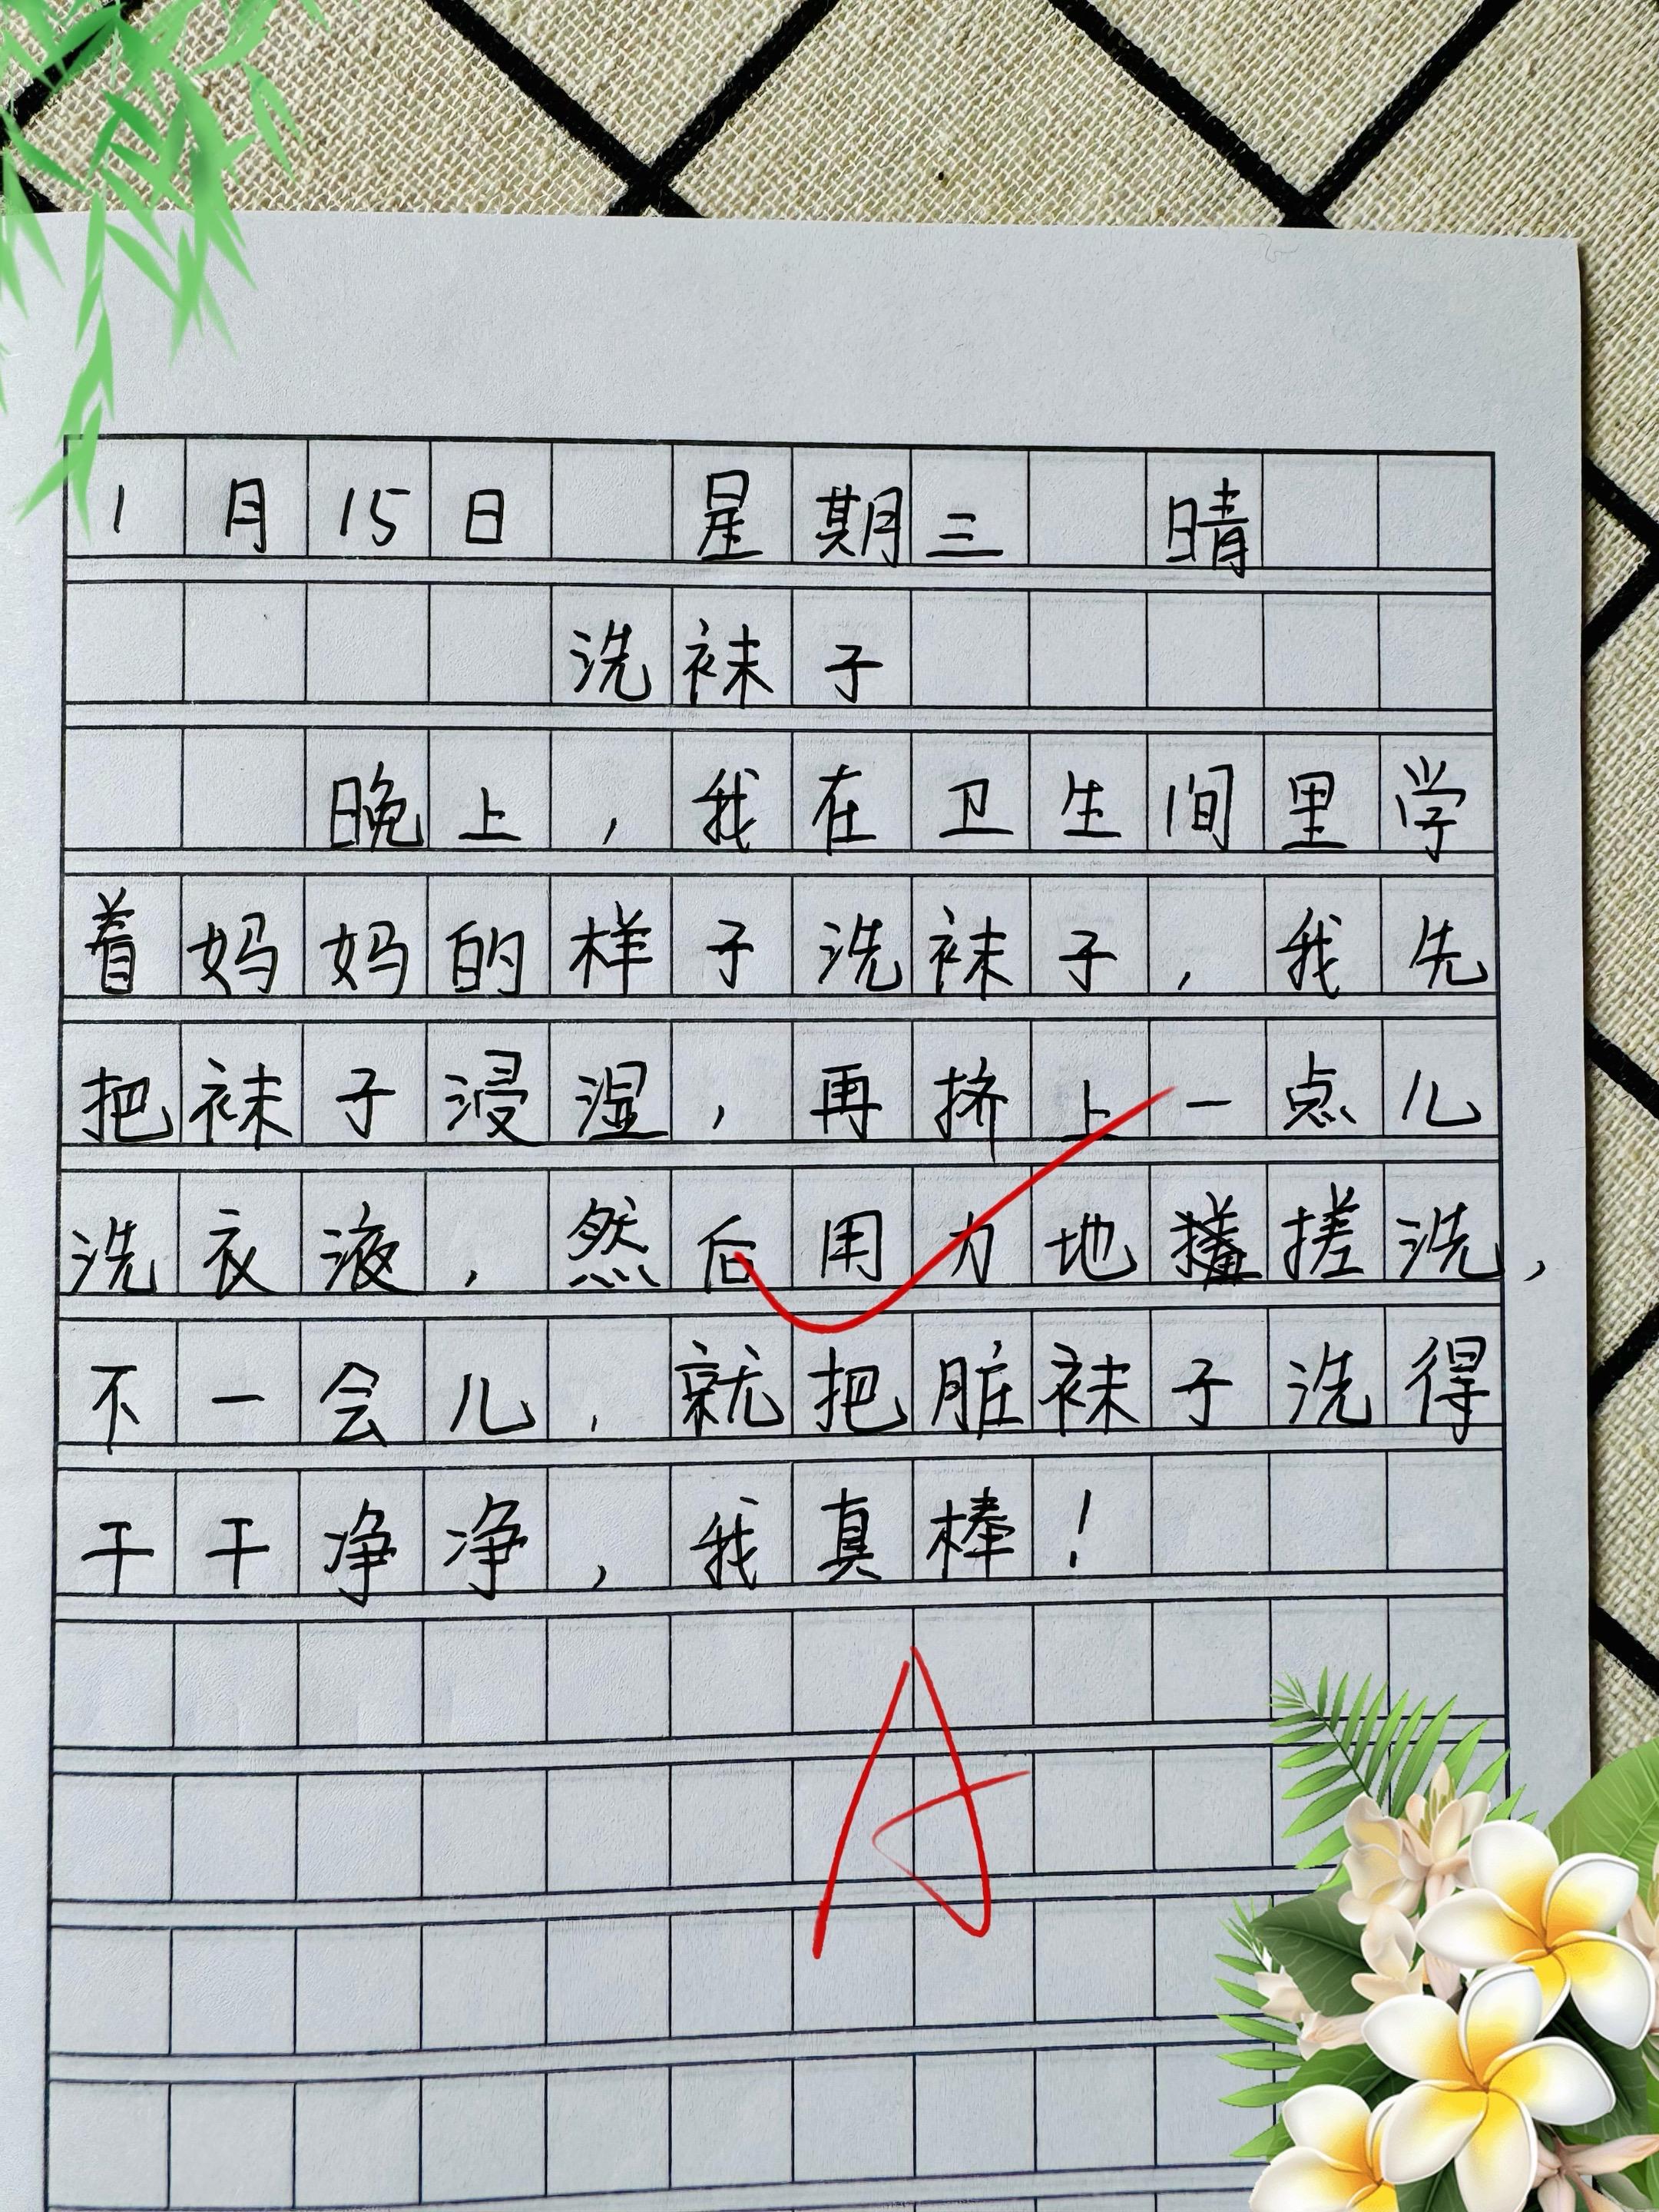 1月15日 星期三 晴
洗袜子
晚上，我在卫生间里学
着妈妈的样子洗袜子，我先
把袜子浸湿，再挤上一点儿
洗衣液，然后用力地搓洗，
不一会儿，就把脏袜子洗得
干干净净，我真棒！
A